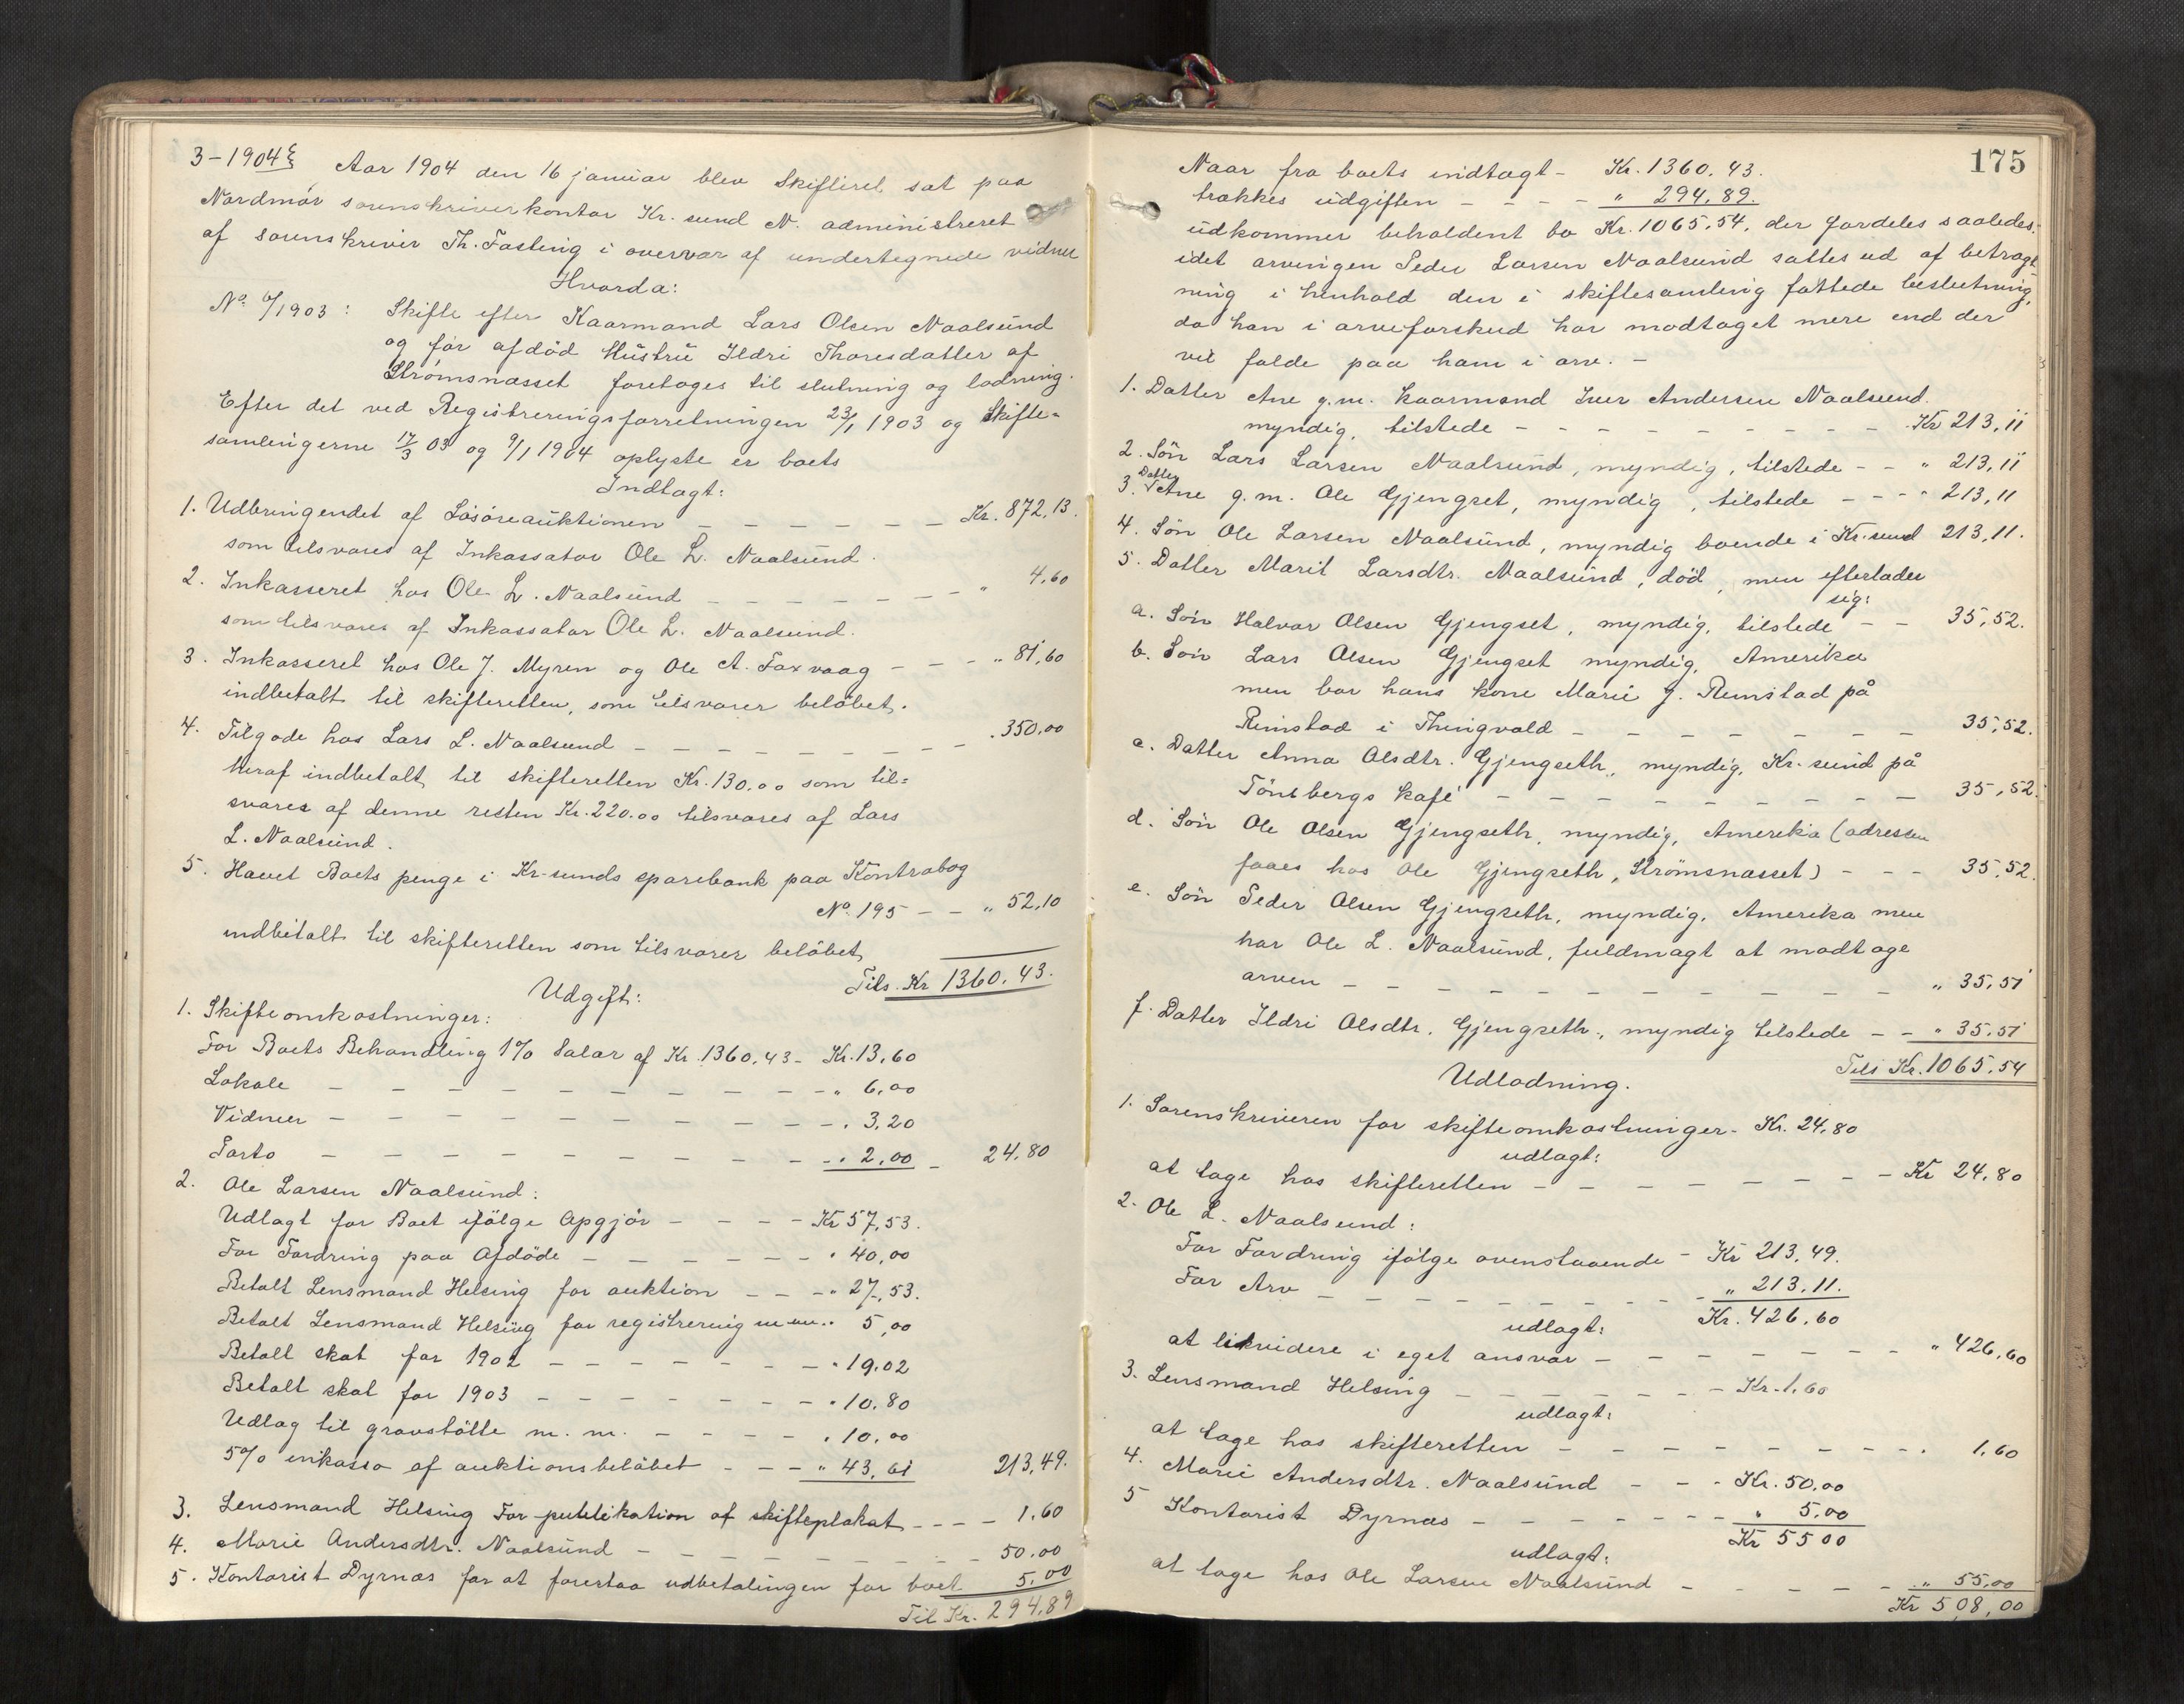 3-1904 Aar 1904 den 16 januar blev Skifteret sat paa
Nordmör sorenskriverkontor Kr. sund N. administreret
af sorenskriver Th. Fasting i overvær af undertegnede vidner
Hvorda:
No. 6/1903: Skifte efter Kaarmand Lars Olsen Naalsund
og før afdöd Hustru Ildri Thoresdatter af
Strömsnæsset foretages til slutning og lodning.
Efter det ved Registreringsforretningen 23/1 1903 og Skifte-
samlingerne 17/3 03 og 9/1 1904 oplyste er boets
Indtægt:
1. Udbringendet af Lösöreauktionen - - - - - - Kr. 872,13.
som tilsvares af Inkassator Ole L. Naalsund.
2. Inkasseret hos Ole L. Naalsund - - - - - - - " 4,60
som tilsvares af Inkassator Ole L. Naalsund.
3. Inkasseret hos Ole J. Myren og Ole A. Faxvaag - - - " 81,60
indbetalt til skifteretten, som tilsvarer belöbet.
4. Tilgode hos Lars L. Naalsund - - - - - - - - - . 350,00
heraf indbetalt til skifteretten Kr. 130.00 som til=
svares af denne resten Kr. 220.00 tilsvares af Lars
L. Naalsund.
5. Hævet Boets penge i Kr-sunds sparebank paa Kontrabog
No. 195 - - " 52,10
indbetalt til skifteretten som tilsvarer belöbet
Tils. Kr 1360.43.
Udgift:
1. Skifteomkostninger:
For Boets Behandling 1% Salær af Kr. 1360,43 - Kr. 13,60
Lokale - - - - - - - - - " 6,00
Vidner - - - - - - - - - . 3,20
Porto - - - - - - - - . 2,00 - 24,80
2. Ole Larsen Naalsund:
Udlagt for Boet ifölge Opgjör - - - - Kr 57,53.
For Fordring paa Afdöde - - - - - - . 40,00
Betalt Lensmand Helsing for auktion - - - " 27,53.
Betalt Lensmand Helsing for registrering m m. . 5,00
Betalt skat for 1902 - - - - - - - " 19.02
Betalt skat for 1903 - - - - - - - " 10.80
Udlæg til gravstötte m. m. - - - - . 10.00
5% inkasso af auktionsbelöbet - - - " 43,61 213,49.
3. Lensmand Helsing For publikation af skifteplakat - - - - 1.60
4. Marie Andersdtr. Naalsund - - - - - - - - - 50.00
5. Kontorist Dyrnæs for at forestaa udbetalingen for boet 5.00
Til Kr. 294,89
175
Naar fra boets indtægt - Kr. 1360.43.
trækkes udgiften - - - - " 294.89.
udkommer beholdent bo Kr. 1065,54, der fordeles saaledes:
idet arvingen Peder Larsen Naalsund sættes ud af betragt
ning i henhold den i skiftesamling fattede beslutning,
da han i arveforskud har modtaget mere end der
vil falde paa ham i arv. -
1. Datter Ane g.m. kaarmand Iver Andersen Naalsund.
myndig, tilstede - - - - - - - - - - Kr 213,11
2. Sön Lars Larsen Naalsund, myndig, tilstede - - " 213,11
3. Datter Ane g.m. Ole Gjengset, myndig, tilstede - - - " 213,11
4. Sön Ole Larsen Naalsund, myndig boende i Kr. sund 213,11.
5. Datter Marit Larsdtr. Naalsund, död, men efterlader
sig:
a. Sön Halvor Olsen Gjengset, myndig, tilstede - - 35,52.
b. Sön Lars Olsen Gjengset myndig, Amerika
men bor hans kone Marie J. Rimstad på
Rimstad i Thingvold - - - - - - - - 35,52.
c. Datter Anna Olsdtr. Gjengseth, myndig, Kr. sund på
Tönsbergs kafé - - - - - - - - - 35,52.
d. Sön Ole Olsen Gjengseth, myndig, Amerika (adressen
faaes hos Ole Gjengseth, Strömsnæsset) - - - 35,52.
e. Sön Peder Olsen Gjengseth, myndig, Amerika men
har Ole L. Naalsund, fuldmagt at modtage
arven - - - - - - - - - - " 35,51
f. Datter Ildri Olsdtr. Gjengseth, myndig tilstede - - " 35.51
Tils Kr. 1065.54
Udlodning.
1. Sorenskriveren for skifteomkostninger - Kr. 24,80
udlagt:
at tage hos skifteretten - - - - - - - - Kr 24,80
2. Ole L. Naalsund:
For Fordring ifölge ovenstaaende - Kr 213,49.
For Arv - - - - - - - - - " 213.11.
Kr. 426,60
udlagt:
at likvidere i eget ansvar - - - - - - - " 426,60
3. Lensmand Helsing - - - - - - - Kr. 1,60
udlagt:
at tage hos skifteretten - - - - - - - - - . 1,60
4. Marie Andersdtr. Naalsund - - - Kr. 50.00
5 Kontorist Dyrnæs - - - - - - - " 5.00
Kr 55 00
udlagt:
at tage hos Ole Larsen Naalsund - - - - - " 55,00
Kr 508,00